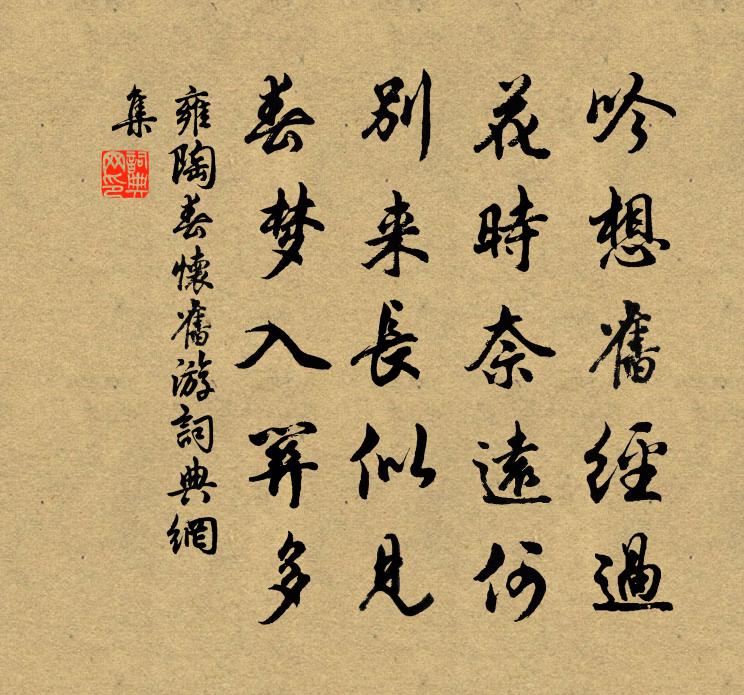 吟想舊經過
花時奈遠何
別来長似見
春梦入關多
雍陶春懷舊游詞典網
集
詞典网印